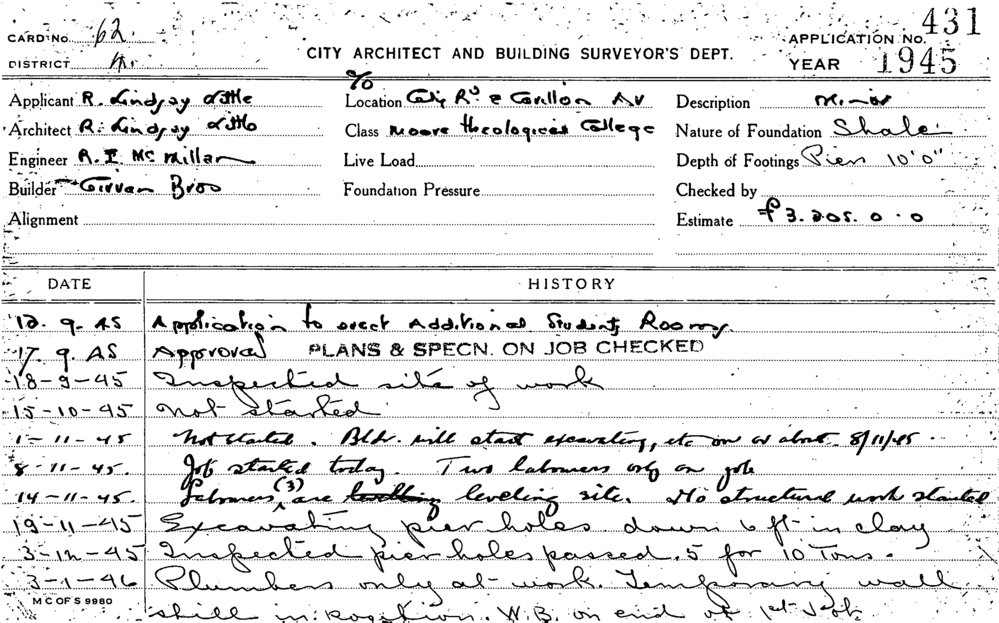 CARD No. 62
DISTRICT 4.
CITY ARCHITECT AND BUILDING SURVEYOR'S DEPT.
APPLICATION NO. 431
YEAR 1945
Applicant R. Lindsay Little
Architect R. Lindsay Little
Engineer R. I. McMillan
Builder Girvan Bros
Alignment
Location c/o City Rd & Carillon Av
Class Moore Theological College
Live Load
Foundation Pressure
Description Minor
Nature of Foundation Shale
Depth of Footings Piers 10'0"
Checked by
Estimate £3.205.0.0
DATE HISTORY
12.9.45 Application to erect Additional Students Rooms
17.9.45 Approval PLANS & SPECN. ON JOB CHECKED
18-9-45 Inspected site of work
15-10-45 Not started
1-11-45 Not started. Bldr. will start excavating, etc on or about 8/11/45.
8-11-45. Job started today. Two labourers only on job
14-11-45 Labourers (3) are leveling site. No structural work started
19-11-45 Excavating pier holes down 6 ft in clay
3-12-45 Inspected pier holes passed. 5 for 10 Tons.
3-1-46 Plumbers only at work. Temporary wall
still in position. W.B. on end of 1st
M C OF S 9980